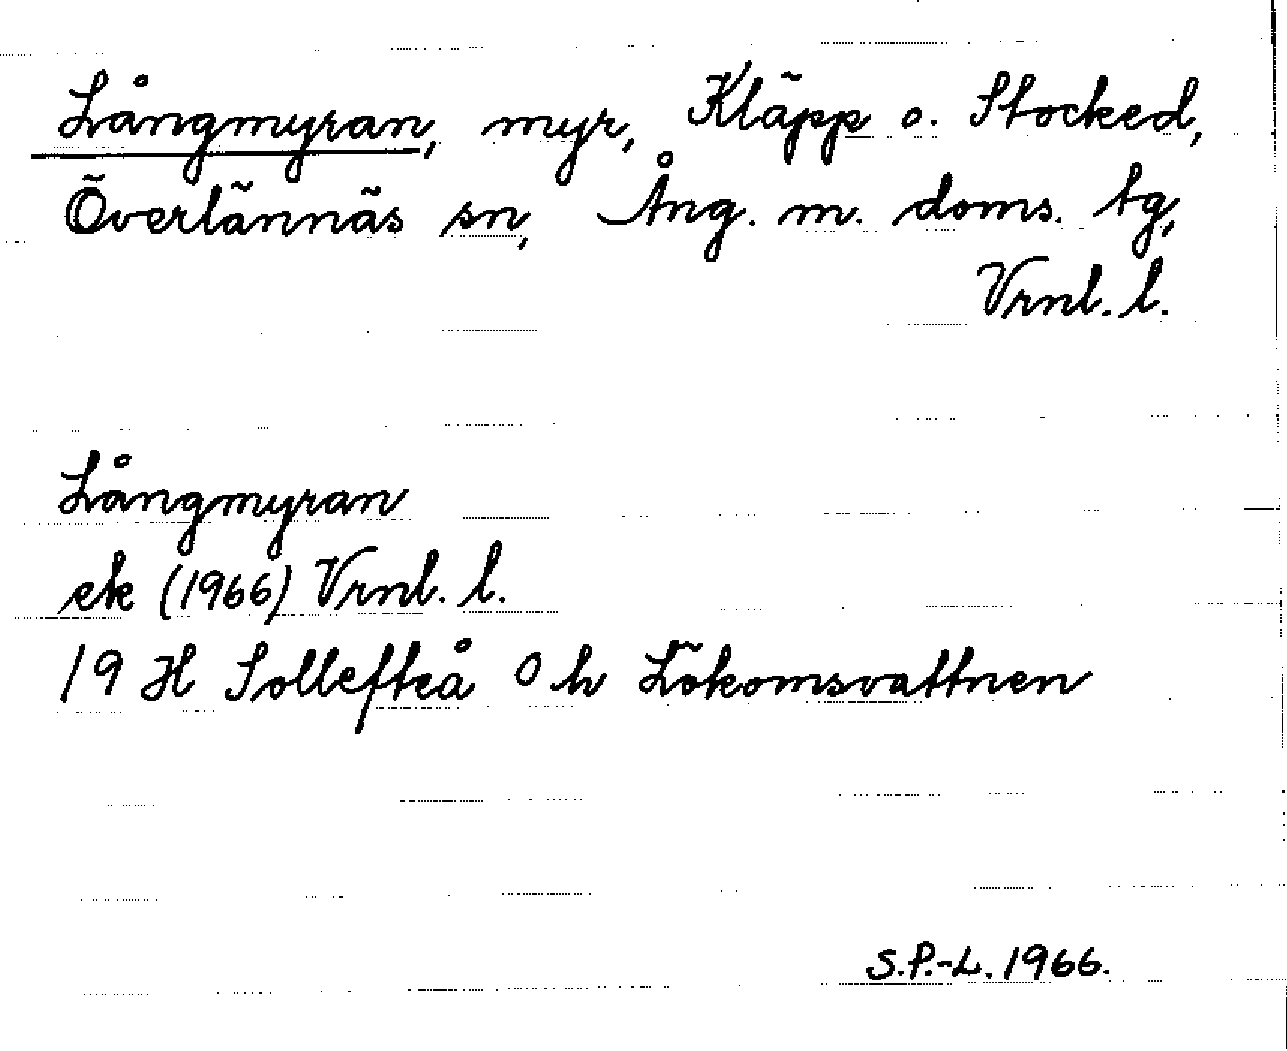 Långmyran, myr, Kläpp o. Stocked,
Överlännäs sn, Ång. m. doms. tg,
Vrnl. l.
Långmyran
ek (1966) Vrnl. l.
19 H Sollefteå 0 h Lökomsvattnen
S.P.-L. 1966.